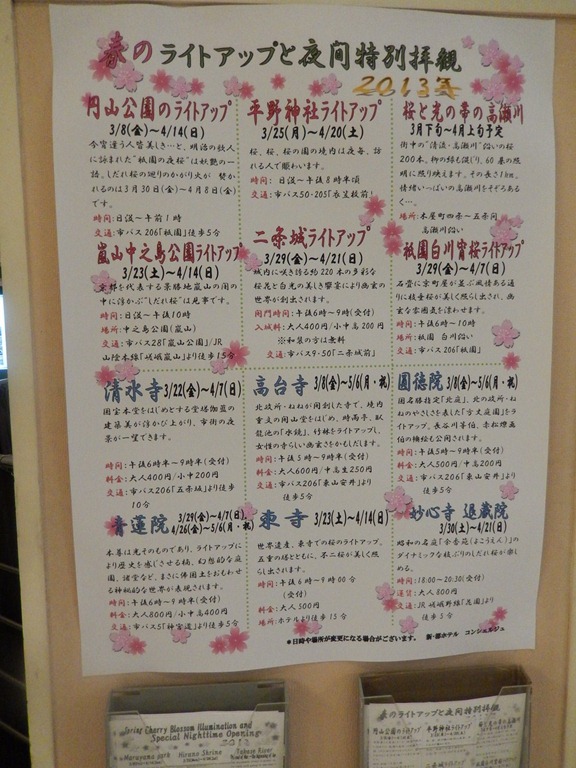 春のライトアップと夜間特別拝観
2013年
円山公園のライトアップ
3/8(金)~4/14(日)
今宵逢う人皆美しき…と、明治の歌人
に詠まれた"祇園の夜桜"は妖艶の一
語。しだれ桜の廻りのかがり火が 焚か
れるのは3月30日(金)~4月8日(金)
です。
時間:日没~午前1時
交通:市バス206「祇園」徒歩5分
平野神社ライトアップ
3/25(月)~4/20(土)
桜、桜、桜の園の境内は夜毎、訪
れる人で賑わいます。
時間: 日没~午後8時半頃
交通:市バス50・205「衣笠校前」
桜と光の帯の高瀬川
3月下旬~4月上旬予定
街中の"清流・高瀬川"沿いの桜
200本。柳の緑も混じり、60基の照
明に照り映えます。その長さ1km。
情緒いっぱいの高瀬川をそぞろある
く…
場所:木屋町四条~五条間
高瀬川沿い
嵐山中之島公園ライトアップ
3/23(土)~4/14(日)
京都を代表する景勝地嵐山の川の
中に浮かぶ"しだれ桜"は見事です。
時間:日没~午後10時
場所:中之島公園(嵐山)
交通:市バス28「嵐山公園」/JR
山陰本線「嵯峨嵐山」より徒歩15分
二条城ライトアップ
3/29(金)~4/21(日)
城内に咲き誇る約220本の多彩な
桜花と白光の美しき饗宴により幽玄の
世界が創出されます。
開門時間:午後6時~9時(受付)
入城料:大人400円/小中高200円
※和装の方は無料
交通:市バス9・50「二条城前」
祇園白川宵桜ライトアップ
3/29(金)~4/7(日)
石畳に京町屋が並ぶ風情ある通
りに枝垂桜が美しく照らし出され、幽
玄な雰囲気を漂わせます。
時間:午後6時~10時
場所:祇園 白川沿い
交通:市バス206「祇園」
清水寺 3/22(金)~4/7(日)
国宝本堂をはじめとする堂塔伽藍の
建築美が浮かび上がり、市街の夜
景が一望できます。
時間:午後6時半~9時半(受付)
料金:大人400円/小中200円
交通:市バス206「五条坂」より徒歩
10分
高台寺 3/8(金)~5/6(月・祝)
北政所・ねねが開創した寺で、境内
重文の開山堂をはじめ、時雨亭、臥
龍池の「水鏡」、竹林をライトアップし、
女性の寺らしい幽玄さをかもしだします。
時間:午後5時~9時半(受付)
料金:大人600円/中高生250円
交通:市バス206「東山安井」より
徒歩5分
圓徳院 3/8(金)~5/6(月・祝)
国名勝指定「北庭」、北の政所・ねね
のやさしさを表した「方丈庭園」をライ
トアップ。長谷川等伯、赤松燎画
伯の襖絵も公開されます。
時間:午後5時~9時半(受付)
料金:大人500円/中高200円
交通:市バス206「東山安井」より
徒歩5分
青蓮院 3/29(金)~4/7(日)
4/26(金)~5/6(月・祝)
本尊は光そのものであり、ライトアップに
より歴史を感じさせる楠、幻想的な庭
園、諸堂など、まさに佛国土をおもわせ
る神秘的な世界が表現されます。
時間:午後6時~9時半(受付)
料金:大人800円/小中高400円
交通:市バス5「神宮道」より徒歩5分
東寺 3/23(土)~4/14(日)
世界遺産、東寺での桜のライトアップ。
五重の塔とともに、不二桜が美しく照
らし出されます。
時間:午後6時~9時00分
(受付)
料金:大人500円
場所:ホテルより徒歩15分
妙心寺 退蔵院
3/30(土)~4/21(日)
昭和の名庭「余香苑(よこうえん)」の
ダイナミックな枝ぶりのしだれ桜が楽し
める。
時間:18:00~20:30(受付)
運賃:大人800円
交通:JR嵯峨野線「花園」より
徒歩3分
*日時や場所が変更になる場合がございます。 新・都ホテル コンシェルジュ
Spring Cherry Blossom Illumination and
Special Nighttime Opening
2013
Maruyama park Hirano Shrine Takase River
春のライトアップと夜間特別拝観
円山公園のライトアップ 平野神社ライトアップ 桜と光の帯の高瀬川